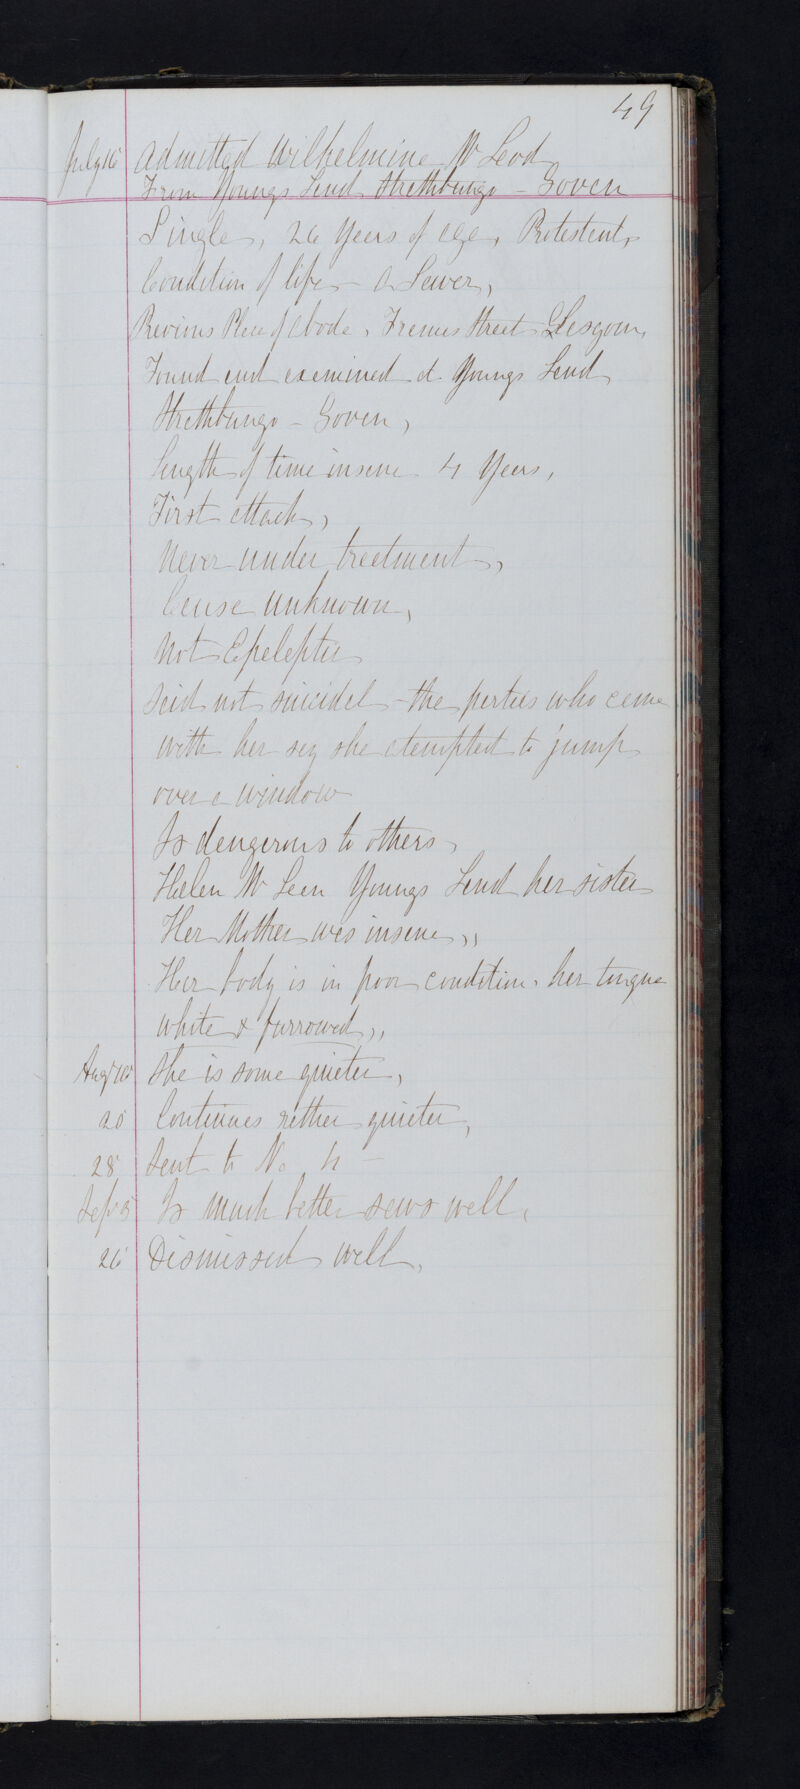 49
July 16 Admitted Wilhelmina Mc Leod
From Youngs Land Strathbungo - Govan
Single, 26 Years of age, Protestant,
Condition of life - a Sewer,
Previous Place of Abode, Street Glasgow,
Found and examined at Youngs Land
Strathbungo - Govan,
length of time insane 4 Years,
First attack,
Never under treatment,
Cause unknown,
Not Epeleptic
Said not suicidal - the parties who came
with her say she atempted to jump
over a window
Is dangerous to others,
Helen Mc Lean Youngs Land her sister
Her Mother was insane,,
Her body is in poor condition, her tongue
white & furrowed,,
Augt 16 She is some quieter,
20 Continues rather quieter,
28 Sent to No 4 -
Sept 5 Is much better sews well,
26 Dismissed well,